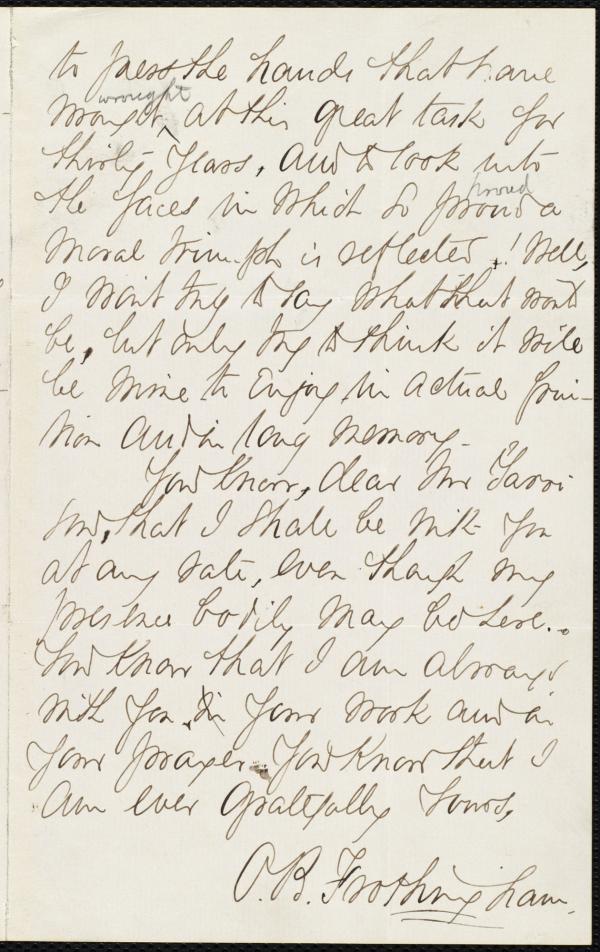 to press the hands that have
wrought
wrought ^ at this great task for
thirty years, and to look into
proud
the faces in which so proud a
moral triumph is reflected! Well,
I wont try to say what that would
be, but only try to think it will
be mine to enjoy in actual frui-
tion and in long memory.
You know, dear Mr Garri
son, that I shall be with you
at any rate, even though my
presence bodily may be here.
You know that I am always
with you, in your work and in
your prayer. You know that I
am ever gratefully yours,
O. B. Frothingham.